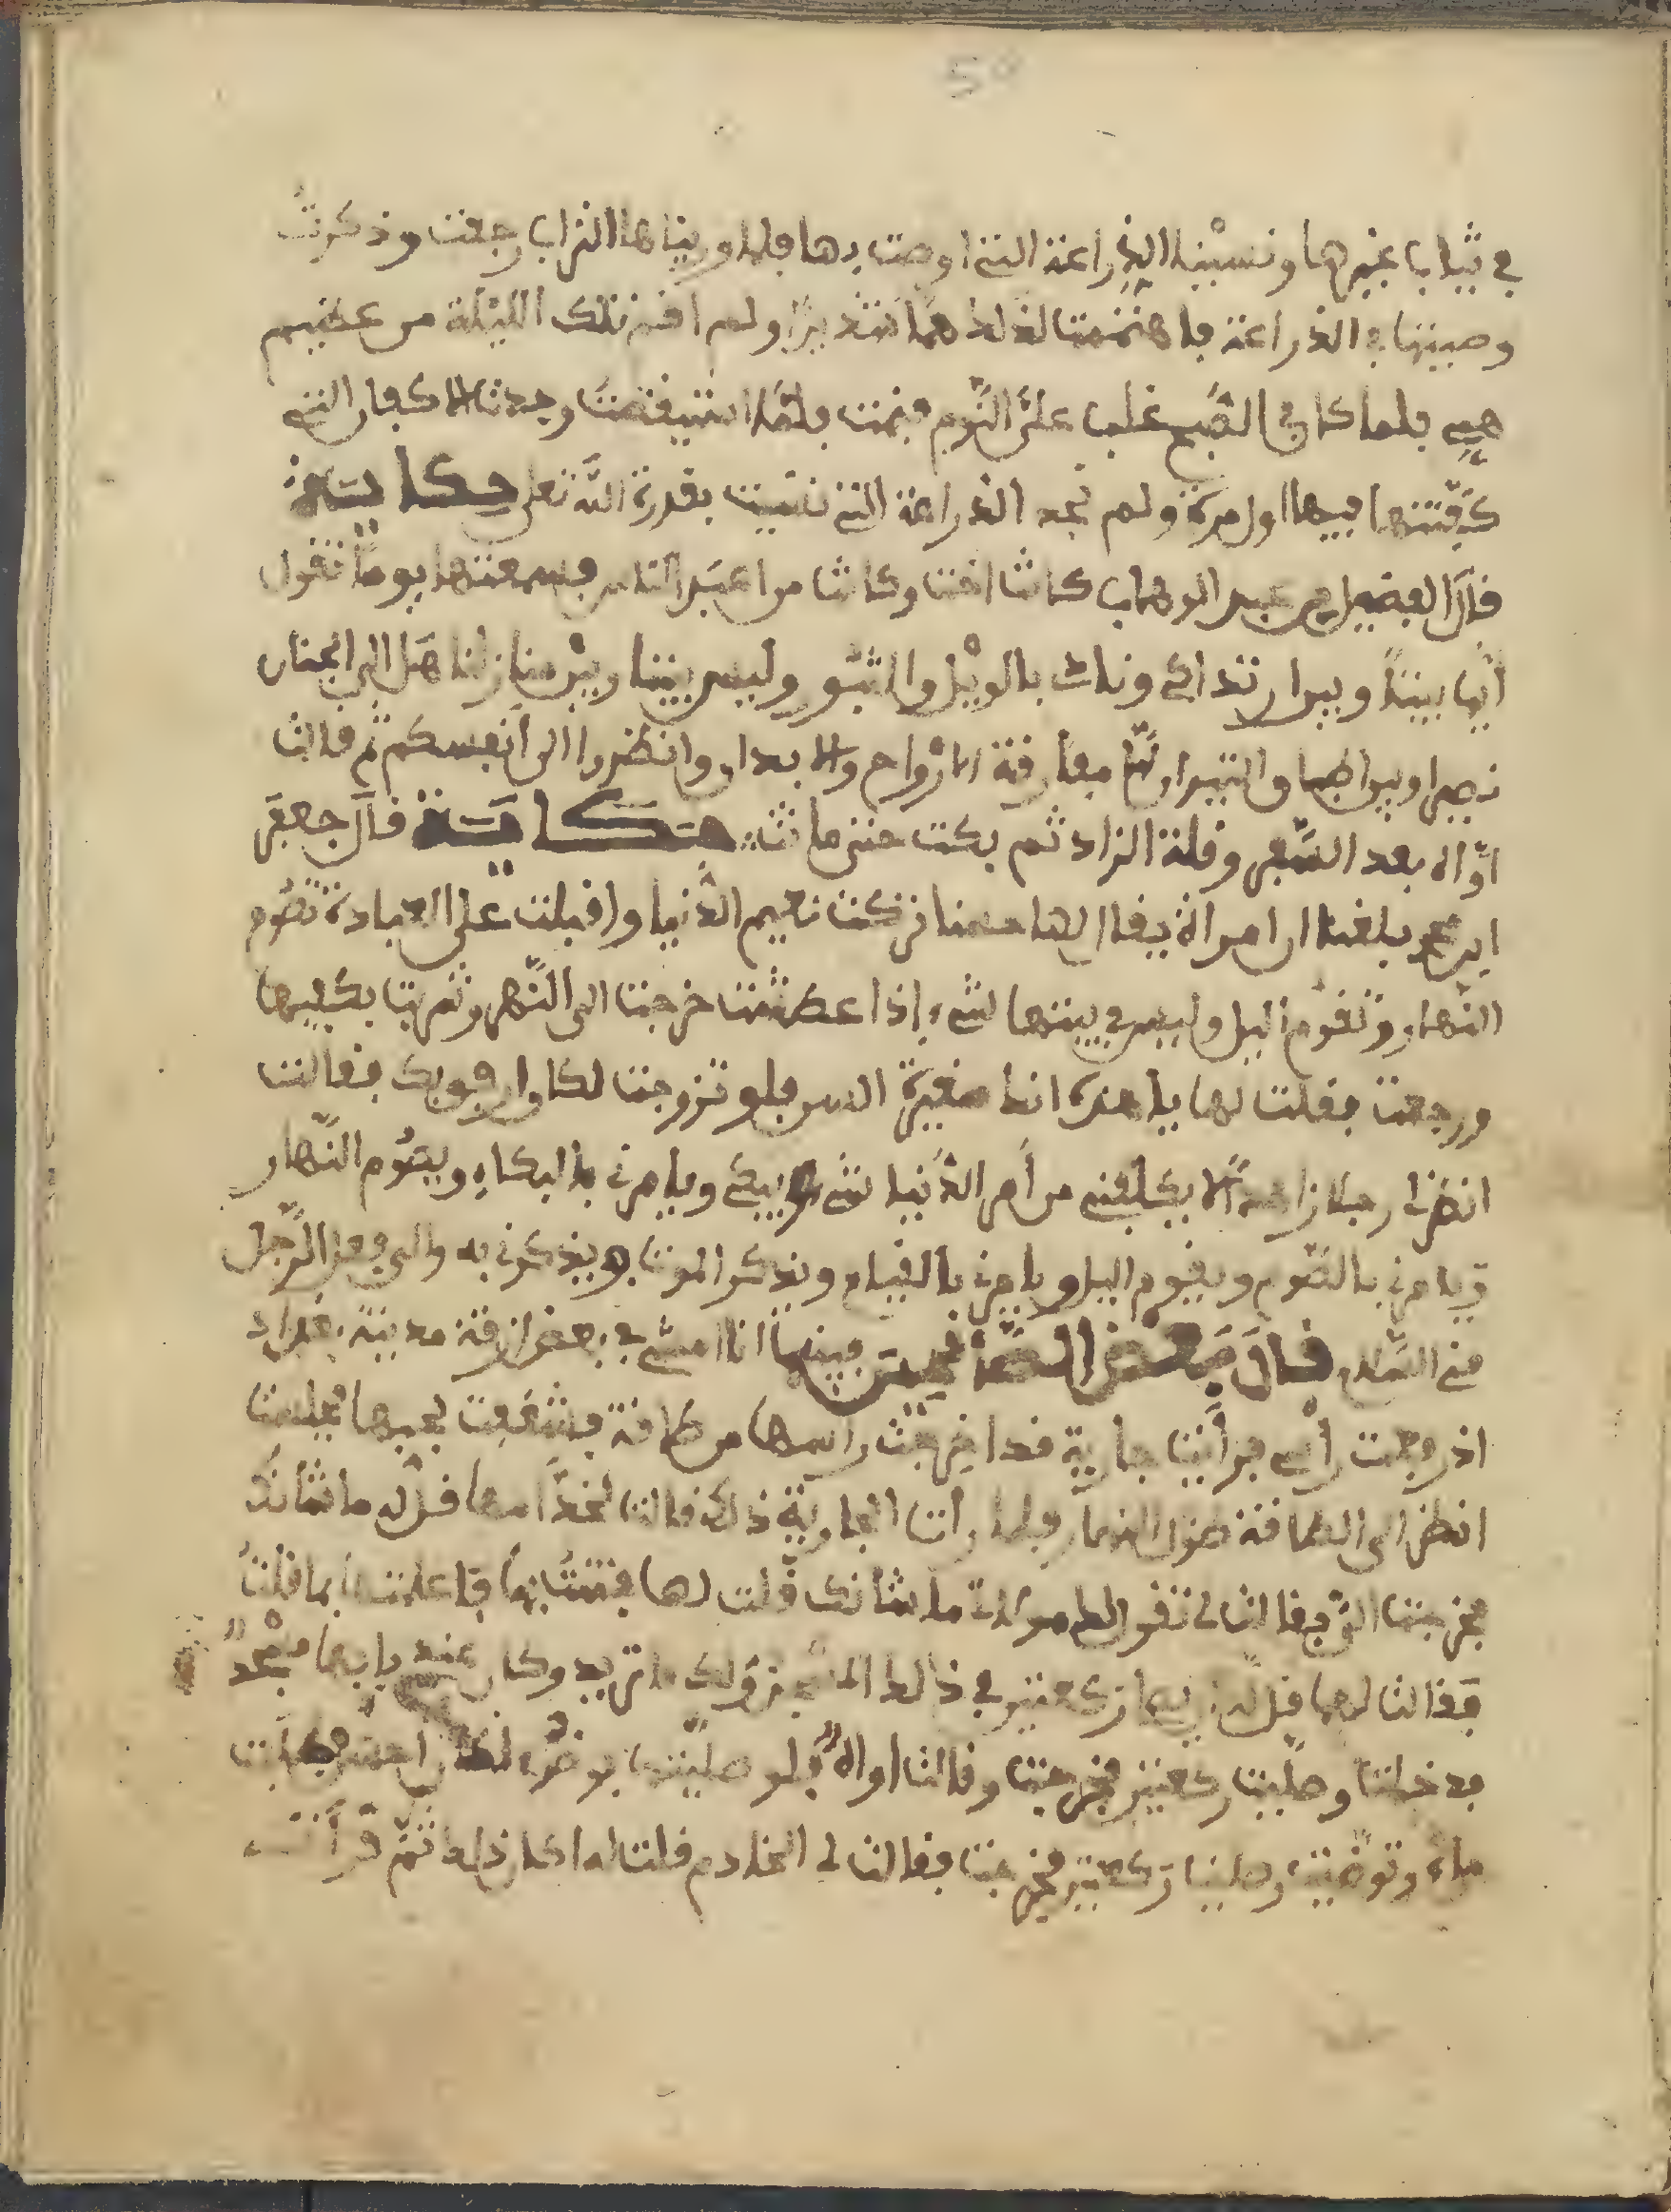 50
في ثياب غيرها ونسيت الذراعة التي اوصت بها فلما وريناها التراب رجعت وذكرتُ
وصيتها في الذراعة فاهتممت لذلك همّا شديدًا ولم انم تلك الليْلة من عظيم
همي فلما كان الصّبح غلب عليّ النّوم فنمت فلمّا استيقضت وجدت الاكفان التي
كفّنتها فيها اول مرة ولم نجد الذراعة التي نسيت بقدرة اللّه تعلى حكاية
قال الفضيل بن عبد الوهاب كانت اخت وكانت من اعبد الناس فسمعتها يومًا تقول
وليس بيننا وبيْن منازلنا هل الى الجنان
نصير او والنيران ثمّ مفارقة الازواح والابدان وانظروا الى أنفسكم ثم قالت
اوّاه بعد السّفر وقلة الزاد ثم بكت حتى ماتت حكاية قال جعفر
بلغنا ان امراة يقال لها حسنا تركت نعيم الدّنيا واقبلت على العبادة تصُوم
النّهار وتقوْم اليل وليس في بيتها شيء إذا عطشت خرجت الى النّهر وشربت بكفيها
ورجعت فقلت لها يا هذه انت صغيرة السن فلو تزوجت لكان ارفق بك فقالت
انظر لي رجلا زاهدًا لا يكلفني من أمر الدّنيا شيء يبكي ويامرني بالبكاء ويصُوم النّهار
ويامرني بالصّوم ويقوم اليل ويامرني بالقيام ويذكر الموت ويذكرني به والى الرّجل
مني السّلام قال بَعض الصّالحين بينما انا امشي في بعض ازقة مدينة بغداد
اذ رفعت رأسي فرأيت جارية قد اخرجت راسها من طاقة فشغفت بحبها فجلست
انظر الى الطاقة طول النهار فلما رأت الجارية ذلك قالت لخدّامها قل له ما شأنك
فخرجت اليّ فقالت لي تقول لك مولاتي ما شأنك قلت لها فتنت بها فاعلمتها بما قلتُ
فقالت لها قل له يصلي ركعتين في ذلك المسجد نزولك ما تريد وكان عند بابها مسْجدٌ
فدخلت وصليت ركعتين فخرجت وقالت اواه فلو صلّيتهما بوضُوء لكان احسن فطلبت
ماء وتوضيت وصليت ركعتين فخرجت فقالت لي الخادم قلت لها كان ذلك ثمّ قرأت